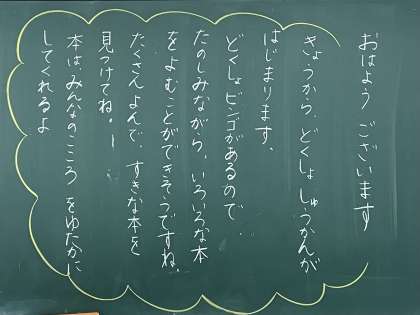 おはよう ございます
きょうから、どくしょ しゅうかんが
はじまります。
どくしょビンゴがあるので
たのしみながら、いろいろな本
をよむことができそうですね。
たくさんよんで、すきな本を
見つけてね。!
本は、みんなのこころ をゆたかに
してくれるよ